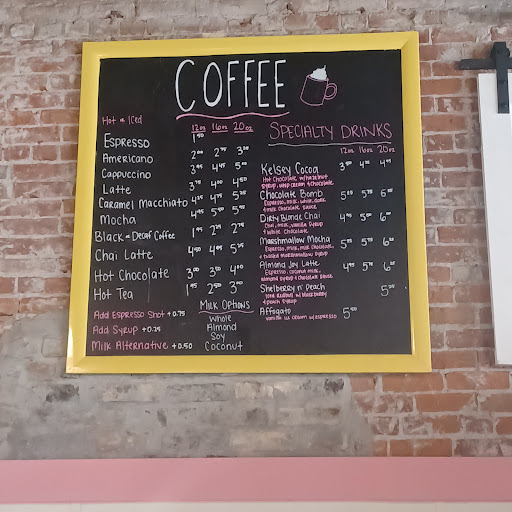 COFFEE
Hot or Iced
12oz 16oz 20oz
Espresso 1.50
Americano 2.00 2.75 3.00
Cappuccino
Latte 3.75 4.00 4.50
Caramel Macchiato 4.25 4.75 5.25
Mocha
Black or Decaf Coffee
Chai Latte 4.50 4.95 5.25
Hot Chocolate 3.00 3.50 4.00
Hot Tea 1.95 2.50 3.00
Add Espresso Shot +0.75
Add Syrup +0.75
Milk Alternative +0.50
Milk Options
Whole
Almond
Soy
Coconut
SPECIALTY DRINKS
12oz 16oz 20oz
Kelsey Cocoa
Hot Chocolate w/ hazelnut
syrup, whip cream & chocolate
Chocolate Bomb
Espresso, milk, white, dark
& milk chocolate sauce
Dirty Blonde Chai
Chai, milk, vanilla syrup
& white chocolate
Marshmallow Mocha
Espresso, milk, milk chocolate
& toasted marshmallow syrup
Almond Joy Latte
Espresso, coconut milk,
almond syrup & chocolate sauce
Shelberry n' Peach
iced redbull w/ blackberry
& peach syrup
Affogato 5.50
Vanilla ice cream w/ espresso